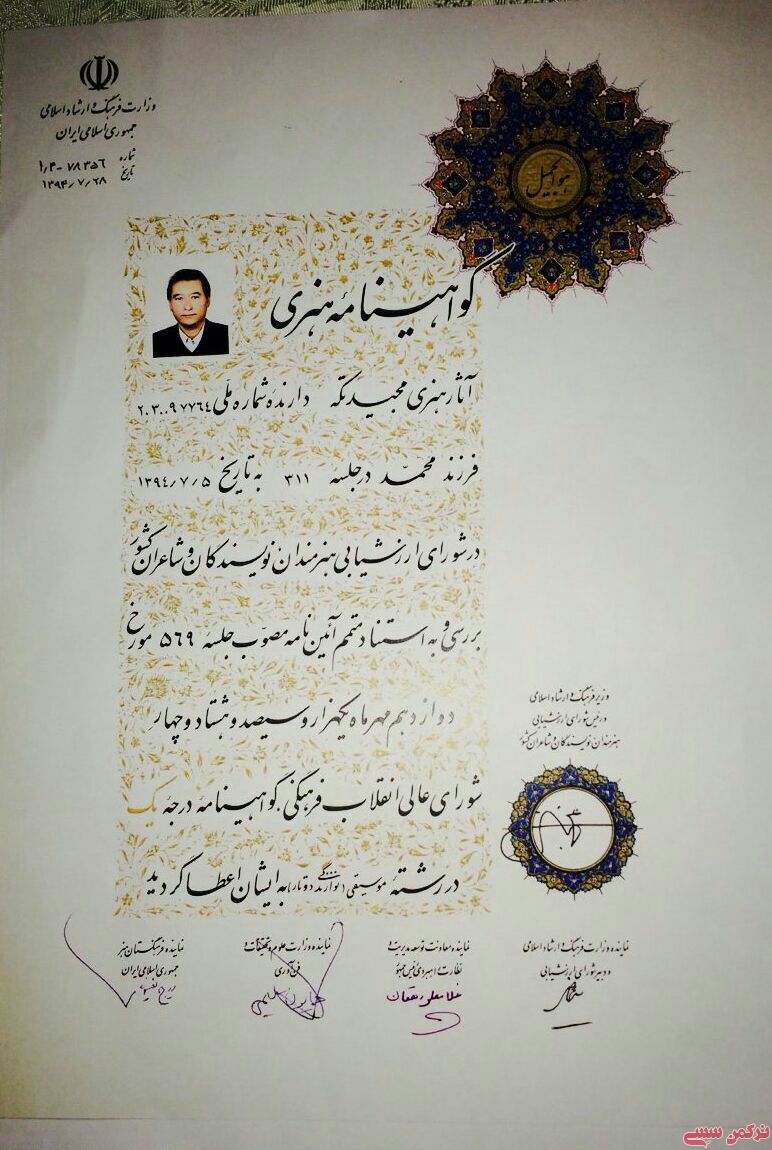 وزارت فرهنگ و ارشاد اسلامی
جمهوری اسلامی ایران
شماره ۱۰۴-۷۸۳۵۶
تاریخ ۱۳۹۴/۷/۲۸
هوالجمیل
گواهینامهٔ هنری
آثار هنری مجید تکه دارندهٔ شماره ملّی ۲۰۳۰۰۹۷۷۶۴
فرزند محمّد در جلسهٔ ۳۱۱ به تاریخ ۱۳۹۴/۷/۵
در شورای ارزشیابی هنرمندان نویسندگان و شاعران کشور
بررسی و به استناد متمم آئین نامه مصوّب جلسهٔ ۵۶۹ مورخ
دوازدهم مهرماه یکهزار و سیصد و هشتاد و چهار
شورای عالی انقلاب فرهنگی گواهینامهٔ درجهٔ یک
در رشتهٔ موسیقی (نوازندگی دوتار) به ایشان اعطا گردید
وزیر فرهنگ و ارشاد اسلامی
و رئیس شورای ارزشیابی
هنرمندان نویسندگان و شاعران کشور
نماینده وزارت فرهنگ و ارشاد اسلامی
و دبیر شورای ارزشیابی
نماینده معاونت توسعه مدیریت و
نظارت راهبردی رئیس جمهور
غلامعلی دهقان
نماینده وزارت علوم و تحقیقات و
فن‌آوری
نماینده فرهنگستان هنر
جمهوری اسلامی ایران
ترکمن سسی